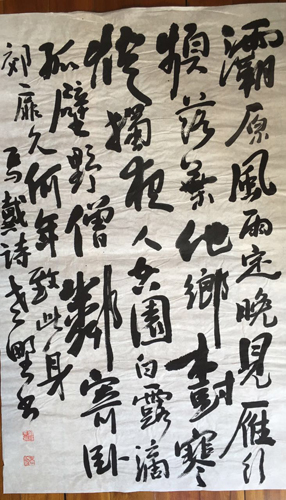 灞原風雨定晚見雁行
頻落葉他鄉樹寒
燈獨夜人空園白露滴
孤壁野僧鄰寄卧
郊扉久何年致此身
馬戴詩